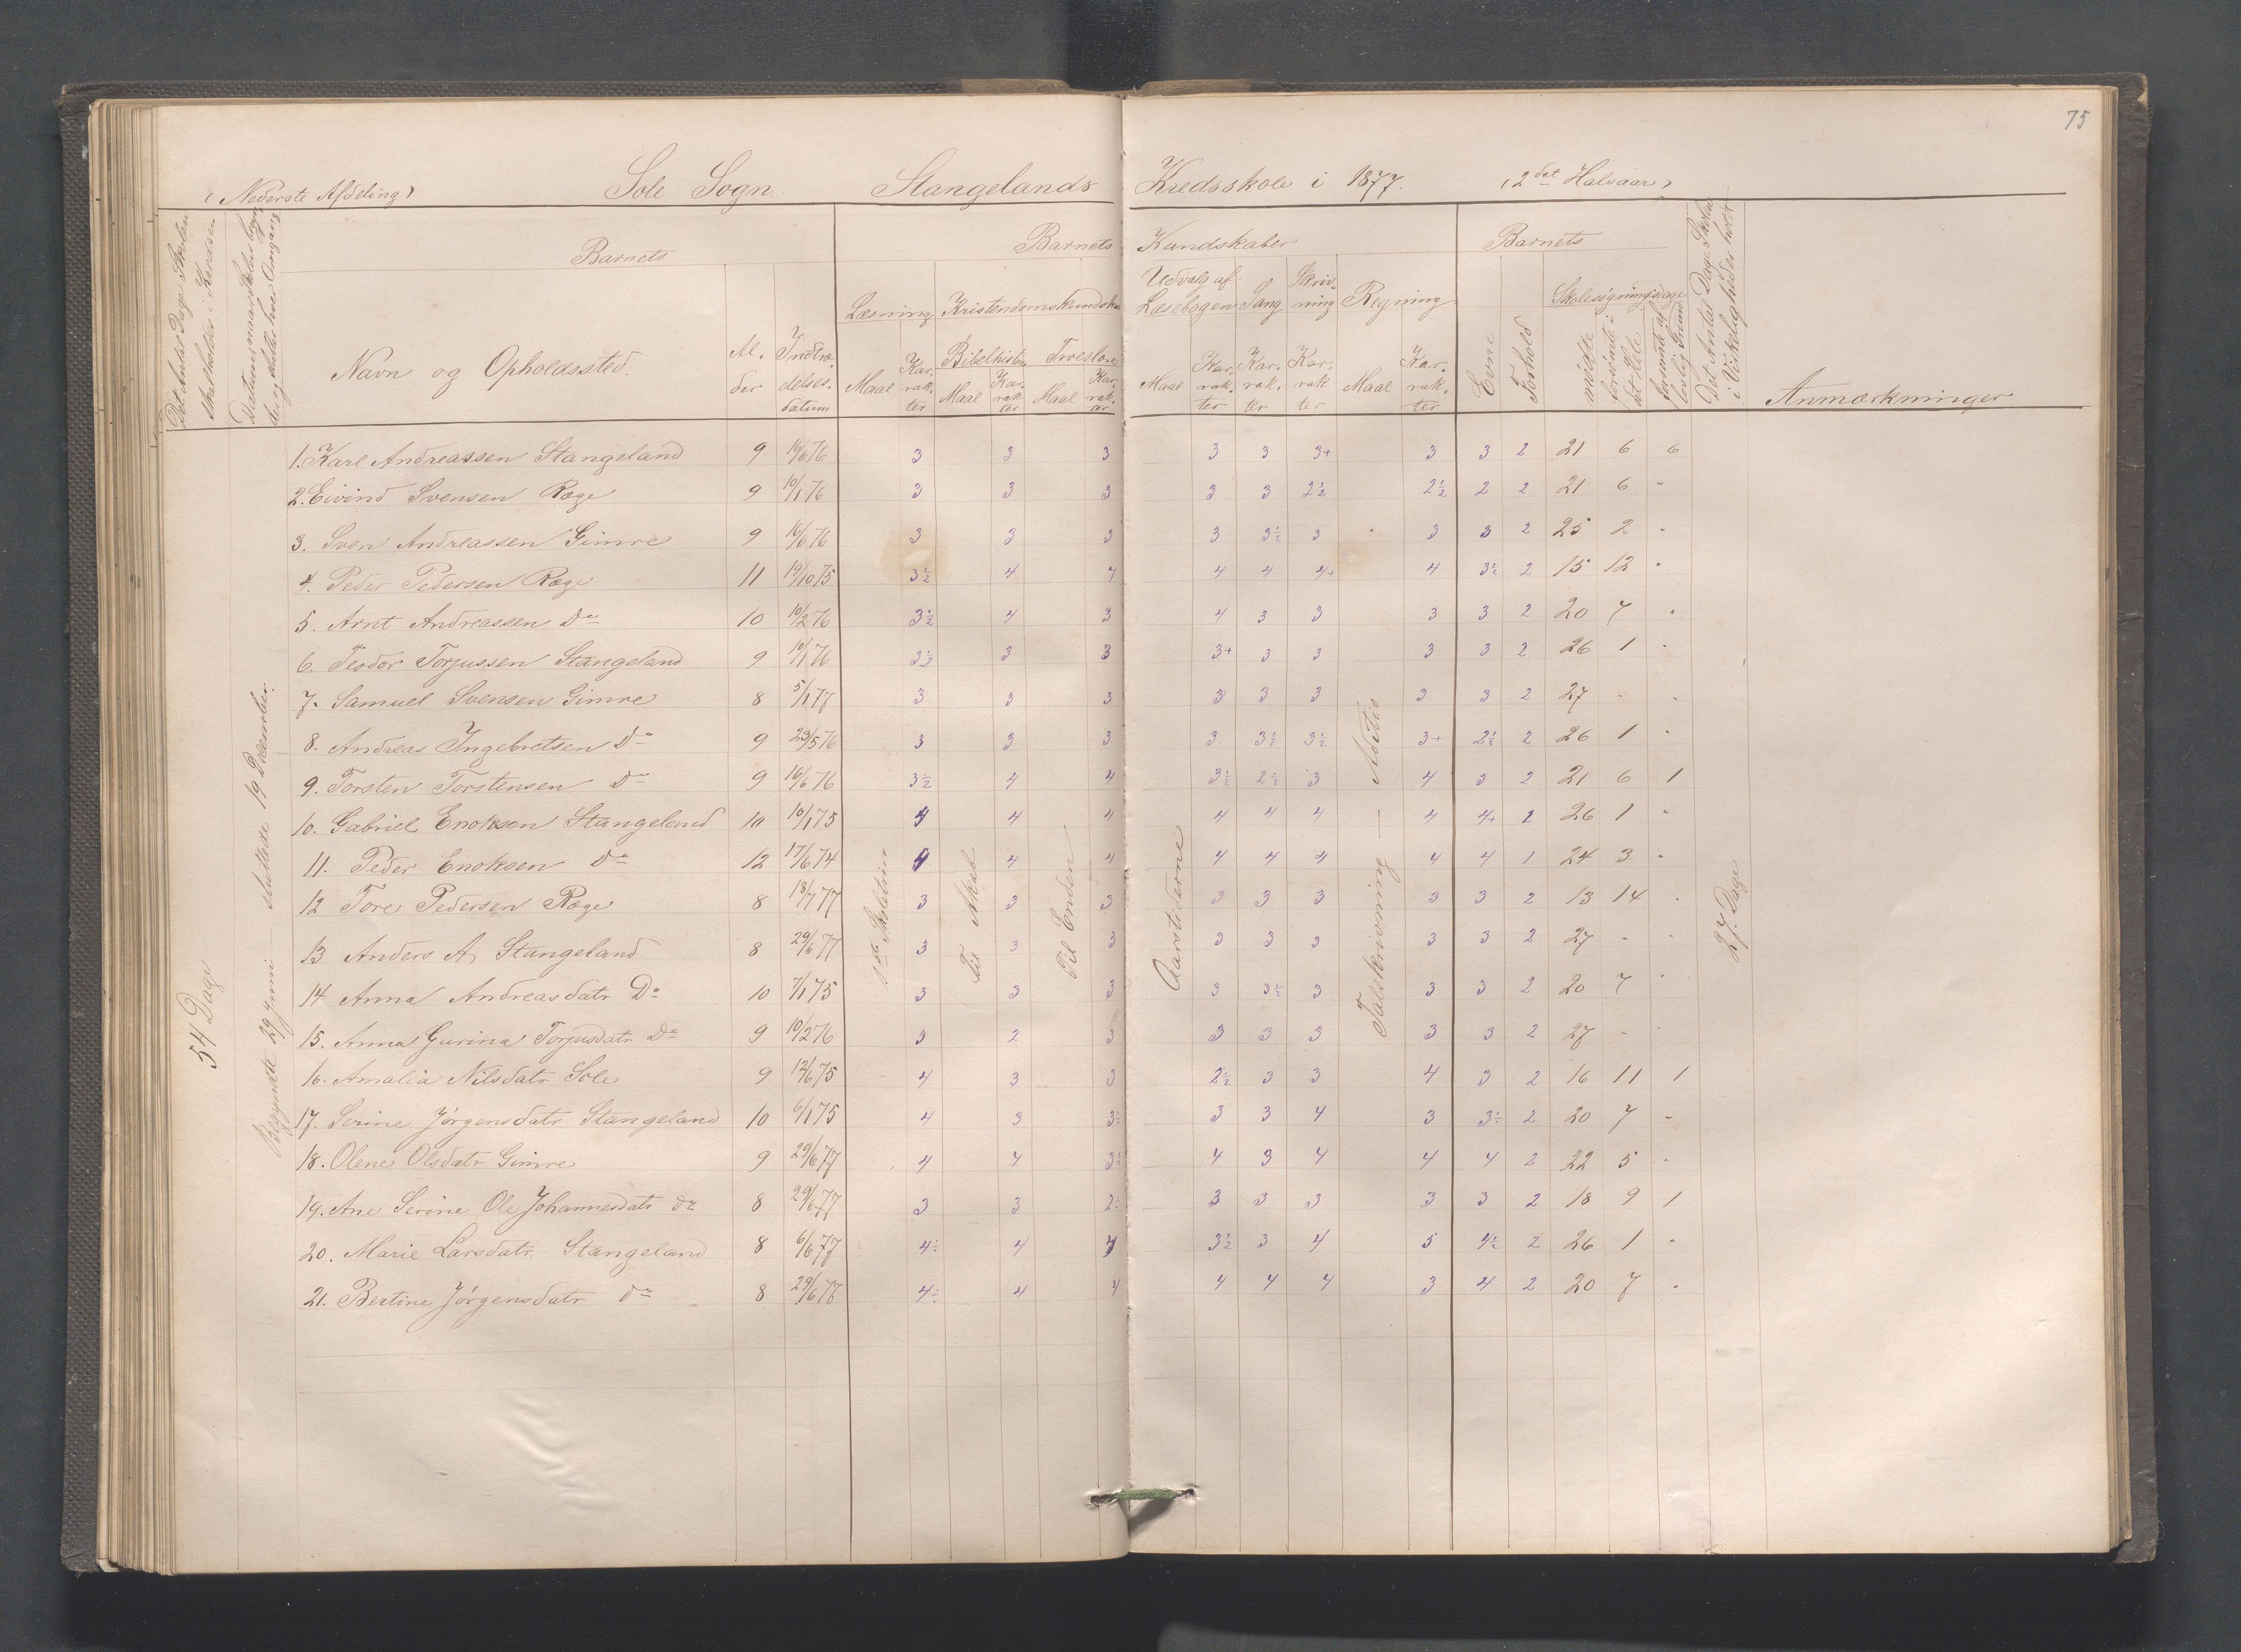 75
(Nederste Afdeling) Sole Sogn. Stangelands Kredsskole i 1877. (2det Halvaar)
Det Antal Dage Skolen skal holdes i Kredsen
Barnets
Barnets Kundskaber
Barnets
Det Antal Dage Skolen i Virkelighed er holdt
Navn og Opholdssted.
Al-der
Indtræ-delses-datum
Læsning
Kristendomskundskab
Udvalg af Læsebogen
Sang
Skriv-ning
Regning
Evne
Forhold
Skolesøgningsdage
Bibelhistorie
Troeslære
Maal Karakter Maal Karakter Maal Karakter Maal Karakter Karakter Karakter Maal Karakter
mødte
forsømte i det Hele
forsømte af lovlig Grund
Anmærkninger
1. Karl Andreassen Stangeland 9 16/6 76 3 3 3 3 3 3+ 3 3 2 21 6 6
2. Eivind Svensen Ræge 9 10/1 76 3 3 3 3 3 2½ 2½ 2 2 21 6 -
3. Sven Andreassen Gimre 9 16/6 76 3 3 3 3 3½ 3 3 3 2 25 2 -
4. Peder Pedersen Ræge 11 19/10 75 3½ 4 4 4 4 4+ 4 3½ 2 15 12 -
5. Arnt Andreassen do 10 10/2 76 3½ 4 3 4 3 3 3 3 2 20 7 -
6. Teodor Torjussen Stangeland 9 10/1 76 3½ 3 3 3+ 3 3 3 3 2 26 1 -
7. Samuel Svensen Gimre 8 5/1 77 3 3 3 3 3 3 3 3 2 27 - -
8. Andreas Ingebretsen do 9 23/5 76 3 3 3 3 3½ 3½ 3+ 2½ 2 26 1 -
9. Torsten Torstensen do 9 16/6 76 3½ 4 4 3½ 2½ 3 4 3 2 21 6 1
10. Gabriel Enoksen Stangeland 10 10/1 75 4 4 4 4 4 4 4 4+ 2 26 1 -
11. Peder Enoksen do 12 17/6 74 4 4 4 4 4 4 4 4 1 24 3 -
12 Tore Pedersen Ræge 8 18/7 77 3 3 3 3 3 3 3 3 2 13 14 -
13 Anders A. Stangeland 8 29/6 77 3 3 3 3 3 3 3 3 2 27 - -
14 Anna Andreasdatr Do 10 7/1 75 3 3 3 3 3½ 3 3 3 2 20 7 -
15. Anna Gurina Torjusdatr Do 9 10/2 76 3 2 3 3 3 3 3 3 2 27 - -
16. Amalia Nilsdatr Sole 9 12/6 75 4 3 3 2½ 3 3 4 3 2 16 11 1
17. Serine Jørgensdatr Stangeland 10 6/1 75 4 3 3÷ 3 3 4 3 3÷ 2 20 7 -
18. Olene Olsdatr Gimre 9 29/6 77 4 4 3½ 4 3 4 4 4 2 22 5 -
19. Ane Serine Ole Johannesdatr do 8 29/6 77 3 3 2÷ 3 3 3 3 3 2 18 9 1
20. Marie Larsdatr Stangeland 8 6/6 77 4÷ 4 4 3½ 3 4 5 4½ 2 26 1 -
21. Bertine Jørgensdatr do 8 29/6 77 4÷ 4 4 4 4 4 3 4 2 20 7 -
54 Dage
Begyndte 29 Juni – sluttede 19 December.
1ste Skoletrin
Til Skab
Til Enden
Aarstiderne
Talskrivning –
27. Dage